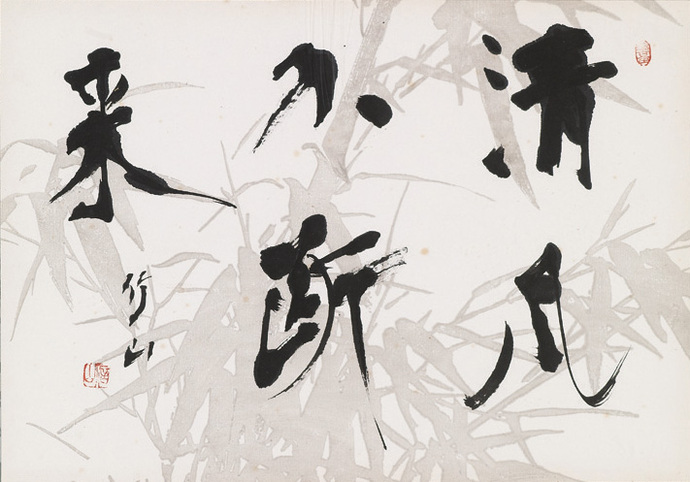 清風
不断
来
竹山